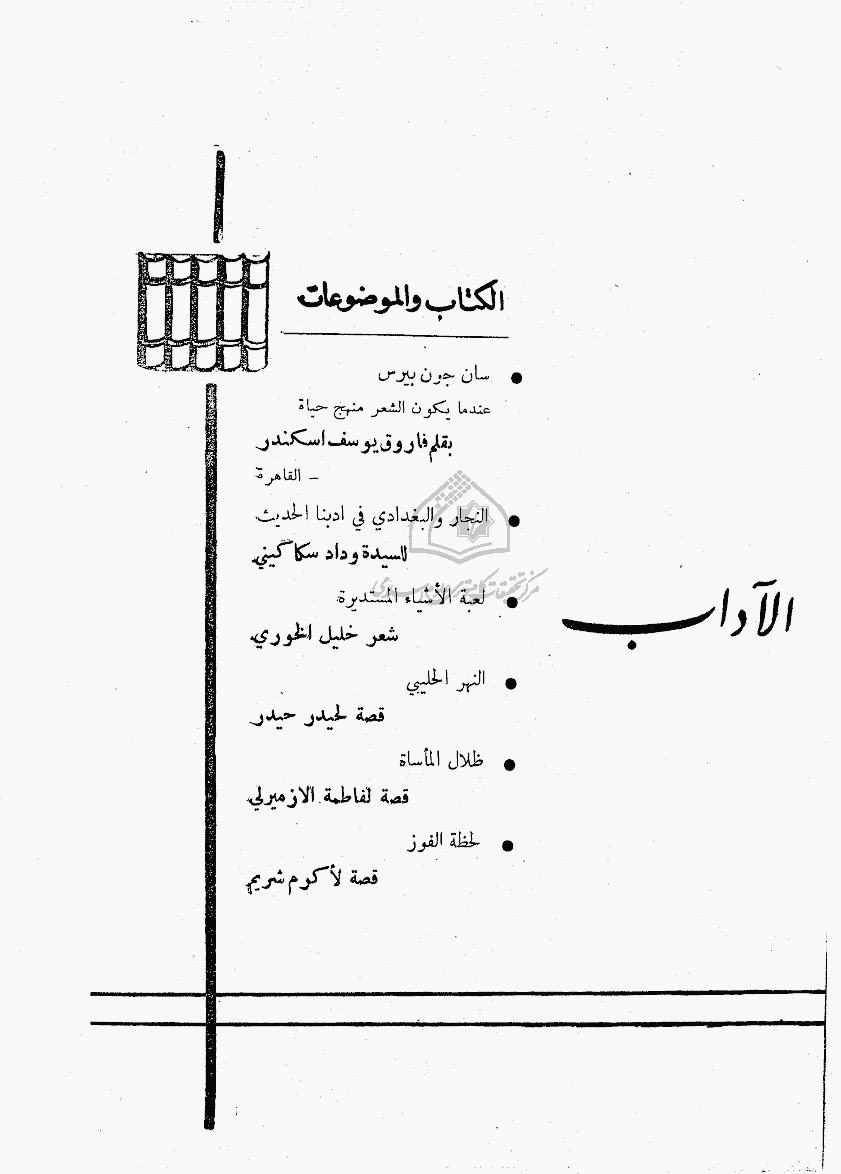 الكتاب والموضوعات
● سان جون بيرس
عندما يكون الشعر منهج حياة
بقلم فاروق يوسف اسكندر
– القاهرة
● النجار والبغدادي في ادبنا الحديث
للسيدة وداد سكاكيني
● لعبة الأشياء المستديرة
شعر خليل الخوري
الآداب
● النهر الحليبي
قصة لحيدر حيدر
● ظلال المأساة
قصة لفاطمة الازميرلي
● لحظة الفوز
قصة لأكرم شريم